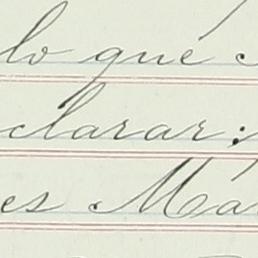 lo que
clarar:
es Ma